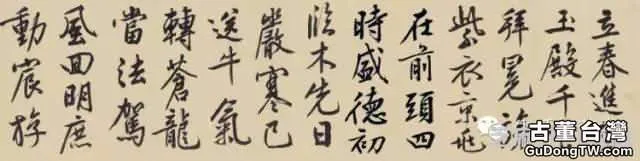 立春進
玉殿千
拜冕旒
紫衣京兆
在前頭四
時盛德初
臨木先日
嚴寒已
送牛氣
轉蒼龍
當法駕
風回明庶
動宸游
古董台灣
GuDongTW.com